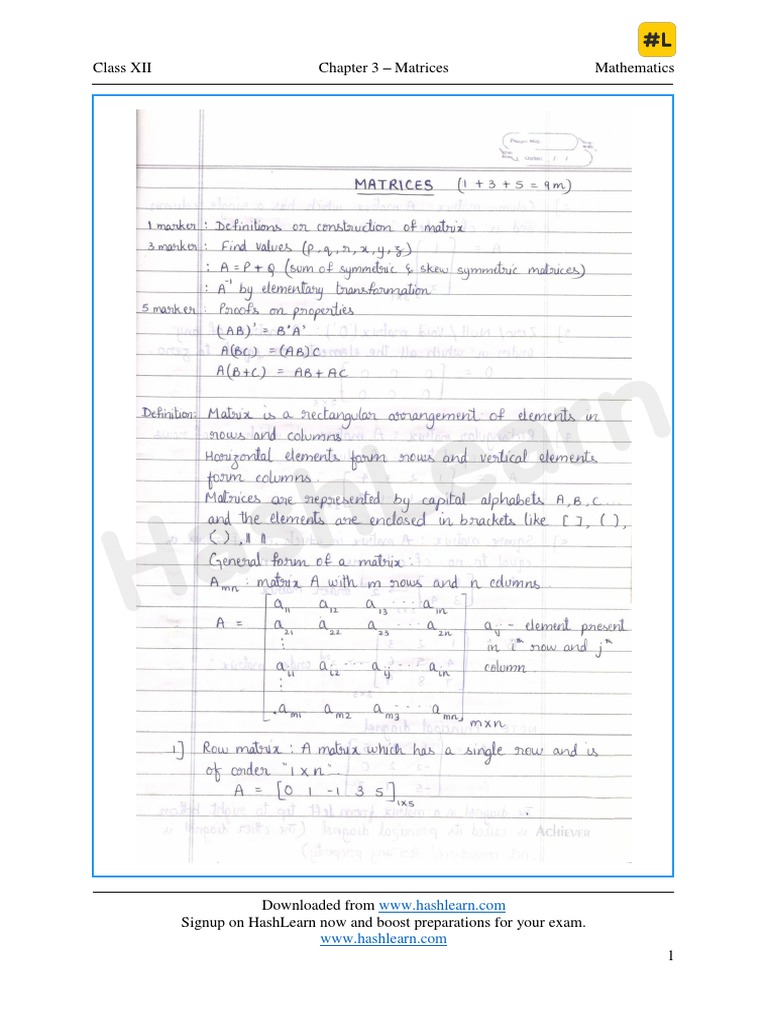 #L
Class XII Chapter 3 – Matrices Mathematics
MATRICES (1 + 3 + 5 = 9m)
1 marker : Definitions or construction of matrix
3 marker : Find values (p, q, r, x, y, z)
: A = P + Q (sum of symmetric & skew symmetric matrices)
: A⁻¹ by elementary transformation
5 marker : Proofs on properties
(AB)' = B'A'
A(BC) = (AB)C
A(B+C) = AB + AC
Definition: Matrix is a rectangular arrangement of elements in
rows and columns
Horizontal elements form rows and vertical elements
form columns.
Matrices are represented by capital alphabets A, B, C ....
and the elements are enclosed in brackets like [ ], ( ),
( ), || ||
General form of a matrix:
Aₘₙ : matrix A with m rows and n columns...
a₁₁ a₁₂ a₁₃ ... a₁ₙ
A = a₂₁ a₂₂ a₂₃ ... a₂ₙ aᵢⱼ - element present
⋮ in iᵗʰ row and jᵗʰ
aᵢ₁ aᵢ₂ ... aᵢⱼ ... aᵢₙ column
⋮
aₘ₁ aₘ₂ aₘ₃ ... aₘₙ m×n
1] Row matrix : A matrix which has a single row and is
of order "1 × n".
A = [0 1 -1 3 5]₁ₓ₅
ACHIEVER
HashLearn
Downloaded from www.hashlearn.com
Signup on HashLearn now and boost preparations for your exam.
www.hashlearn.com
1